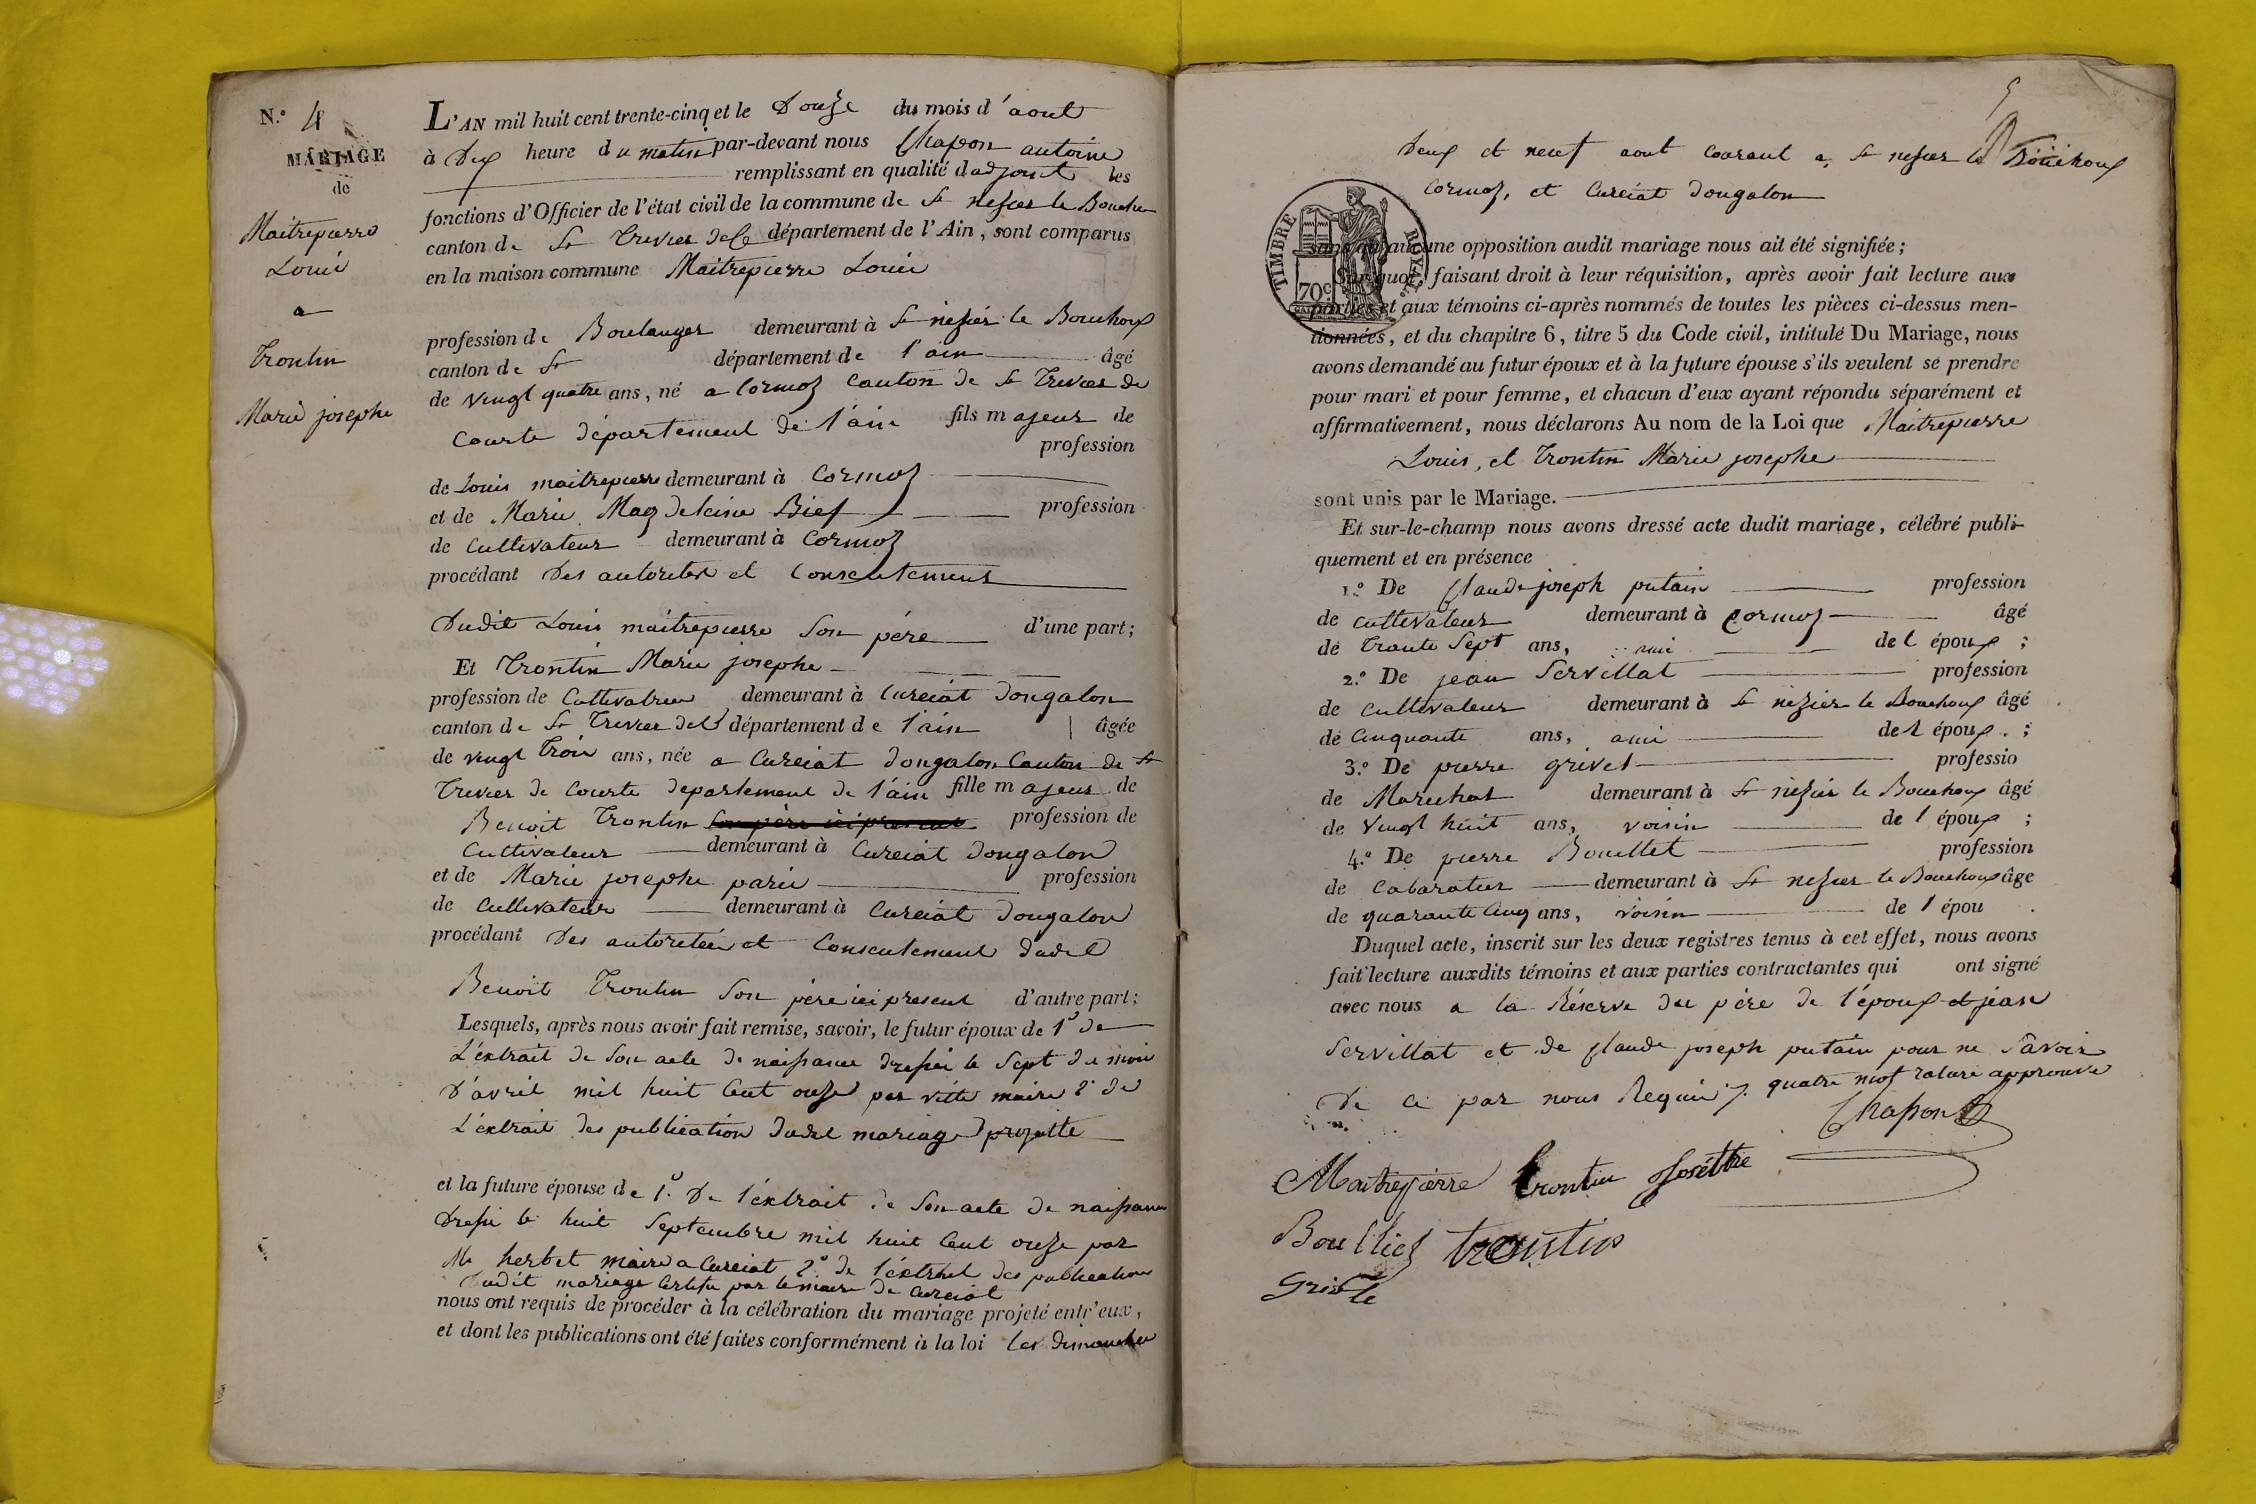 N.° 4
MARIAGE
de
Maitrepierre
Louis
a
Trontin
Marie josephe
L'AN mil huit cent trente-cinq et le Douze du mois d'aout
à Dix heure du matin par-devant nous Chapon antoine
remplissant en qualité d'adjoint les
fonctions d'Officier de l'état civil de la commune de St nizier le Bouchu
canton de St Trivier de Ce département de l'Ain, sont comparus
en la maison commune Maitrepierre Louis
profession de Boulanger demeurant à St nizier le Bouchoux
canton de St département de l'ain âgé
de vingt quatre ans, né a Cormoz Canton de St Trivier de
Courte département de l'ain fils majeur de
profession
de Louis maitrepierre demeurant à Cormoz
et de Marie Magdeleine Bief profession
de Cultivateur demeurant à Cormoz
procédant Des autorites et Consentement
Dudit Louis maitrepierre son pére d'une part;
Et Trontin Marie josephe
profession de Cultivatrice demeurant à Curciat dongalon
canton de St Trivier de Ct département de l'ain âgée
de vingt Trois ans, née a Curciat dongalon Canton de St
Trivier de Courte departement de l'ain fille majeur de
Benoit Trontin son père ici present profession de
Cultivateur demeurant à Curciat dongalon
et de Marie josephe parie profession
de Cultivateur demeurant à Curciat dongalon
procédant Des autoritée et Consentement dudit
Benoit Trontin Son pére ici present d'autre part;
Lesquels, après nous avoir fait remise, savoir, le futur époux de 1° de
L'extrait de Son acte de naissance dressée le Sept du mois
D'avril mil huit Cent onze par vitte maire 2° de
L'extrait des publication dudit mariage projetté
et la future épouse de 1° De l'extrait de Son acte de naissance
Dressé le huit Septembre mil huit Cent onze par
Mr herbet maire a Curciat 2° de l'extrait des publications
Dudit mariage Certifie par le maire De Curciat
nous ont requis de procéder à la célébration du mariage projeté entr'eux,
et dont les publications ont été faites conformément à la loi les dimanches
5
Deux et neuf aout courant a St nizier le Bouchoux
Cormoz, et Curciat dongalon
TIMBRE ROYAL
70c
sans qu'aucune opposition audit mariage nous ait été signifiée;
Sur quoi, faisant droit à leur réquisition, après avoir fait lecture aux
parties et aux témoins ci-après nommés de toutes les pièces ci-dessus men-
tionnées, et du chapitre 6, titre 5 du Code civil, intitulé Du Mariage, nous
avons demandé au futur époux et à la future épouse s'ils veulent se prendre
pour mari et pour femme, et chacun d'eux ayant répondu séparément et
affirmativement, nous déclarons Au nom de la Loi que Maitrepierre
Louis, et Trontin Marie josephe
sont unis par le Mariage.
Et sur-le-champ nous avons dressé acte dudit mariage, célébré publi-
quement et en présence
1.° De Claude joseph putain profession
de cultivateur demeurant à Cormoz âgé
de Trante Sept ans, ami de l époux;
2.° De jean Servillat profession
de cultivateur demeurant à St nizier le Bouchoux âgé
de Cinquante ans, ami de l époux.;
3.° De pierre grivel professio
de Marechat demeurant à St nizier le Bouchoux âgé
de Vingt huit ans, voisin de l époux;
4.° De pierre Bouillet profession
de Cabaratier demeurant à St nizier le Bouchoux âge
de quarante Cinq ans, voisin de l épou.
Duquel acte, inscrit sur les deux registres tenus à cet effet, nous avons
fait lecture auxdits témoins et aux parties contractantes qui ont signé
avec nous a la Réserve du pére de l'époux et jean
Servillat et de Claude joseph putain pour ne Savoir
De Ce par nous Requis quatre mot raturé approuvé
Chapon
Maitrepierre trontin Joséttte
Boulliez trontin
Grivle